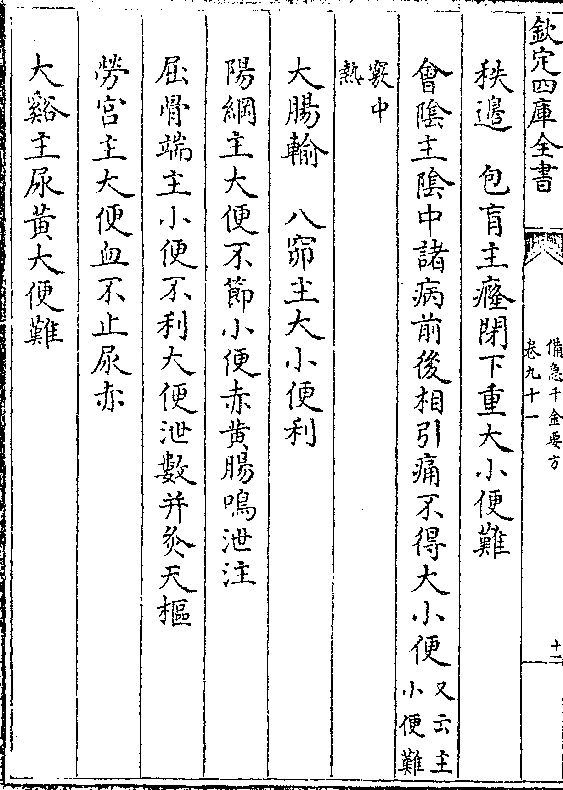 欽定四庫全書
備急千金要方
卷九十一
十二
秩邊　包肓主癃閉下重大小便難
會陰主陰中諸病前後相引痛不得大小便又云主小便難
竅中熱
大腸輸　八窌主大小便利
陽綱主大便不節小便赤黄腸鳴泄注
屈骨端主小便不利大便泄數并灸天樞
勞宫主大便血不止尿赤
大谿主尿黄大便難